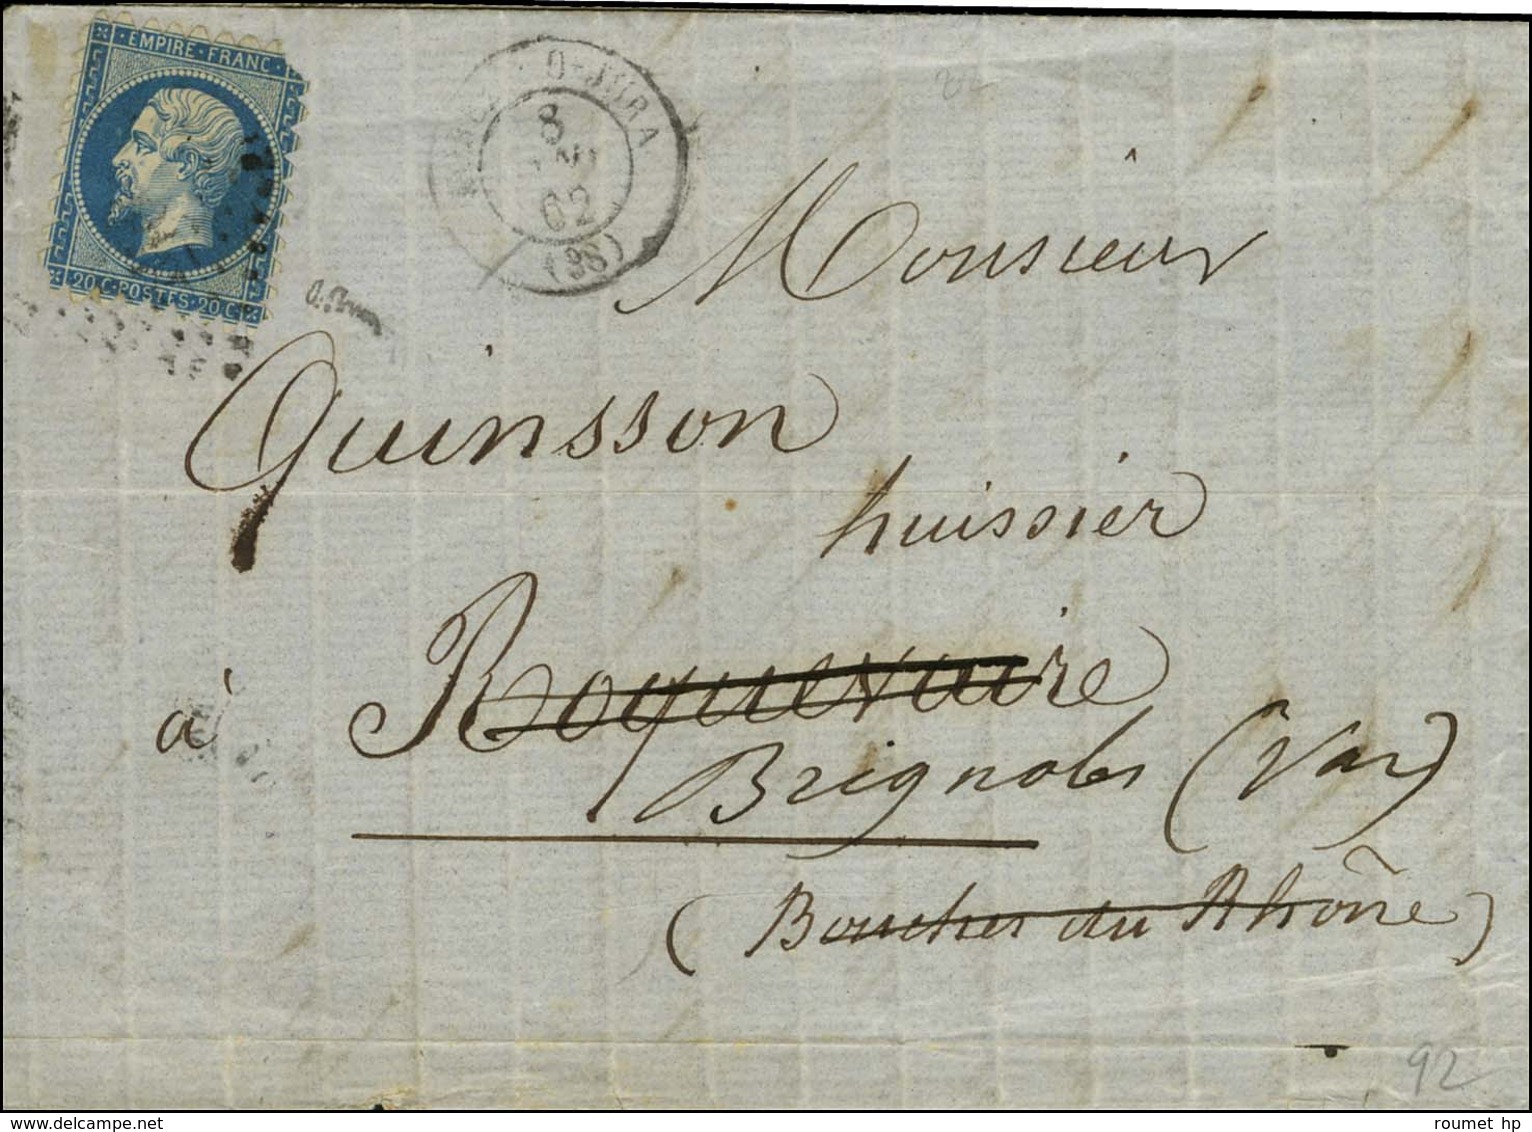 EMPIRE · FRANC ·
20 C · POSTES · 20 C
D-JURA
8
62
(38)
Monsieur
Quinsson
huissier
à Roquevaire
Brignoles (Var)
(Bouches du Rhône)
92
roumet hp